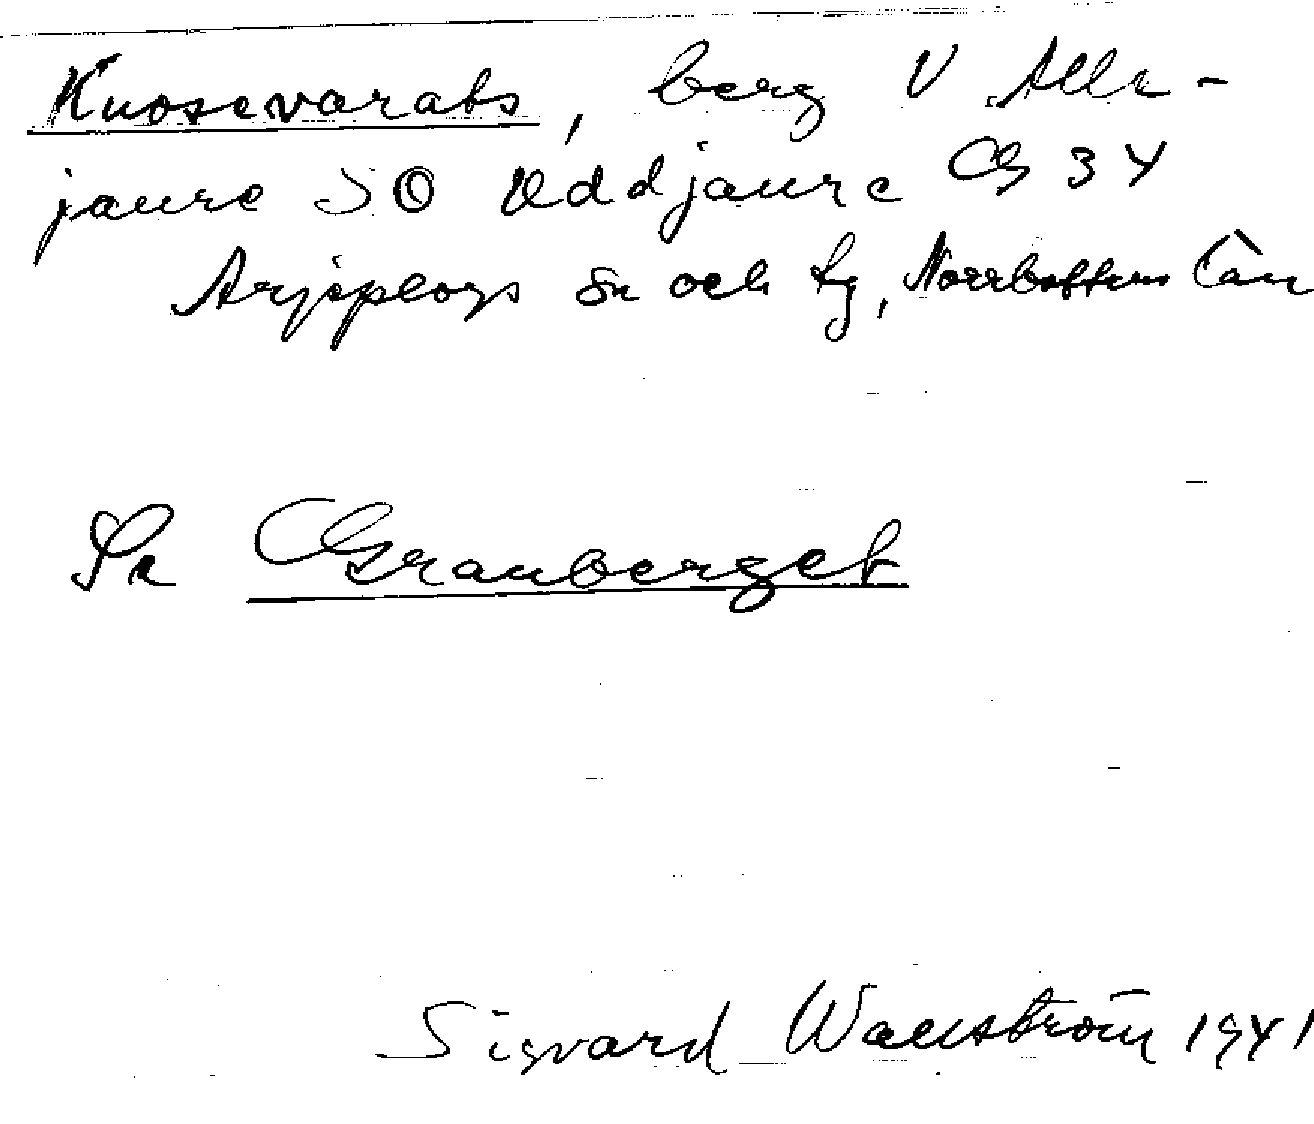 Kuosevarats, berg V Alle-
jaure SO Uddjaure G 34
Arjeplogs sn och tg, Norrbottens län
Se Granberget
Sigvard Wallström 1941